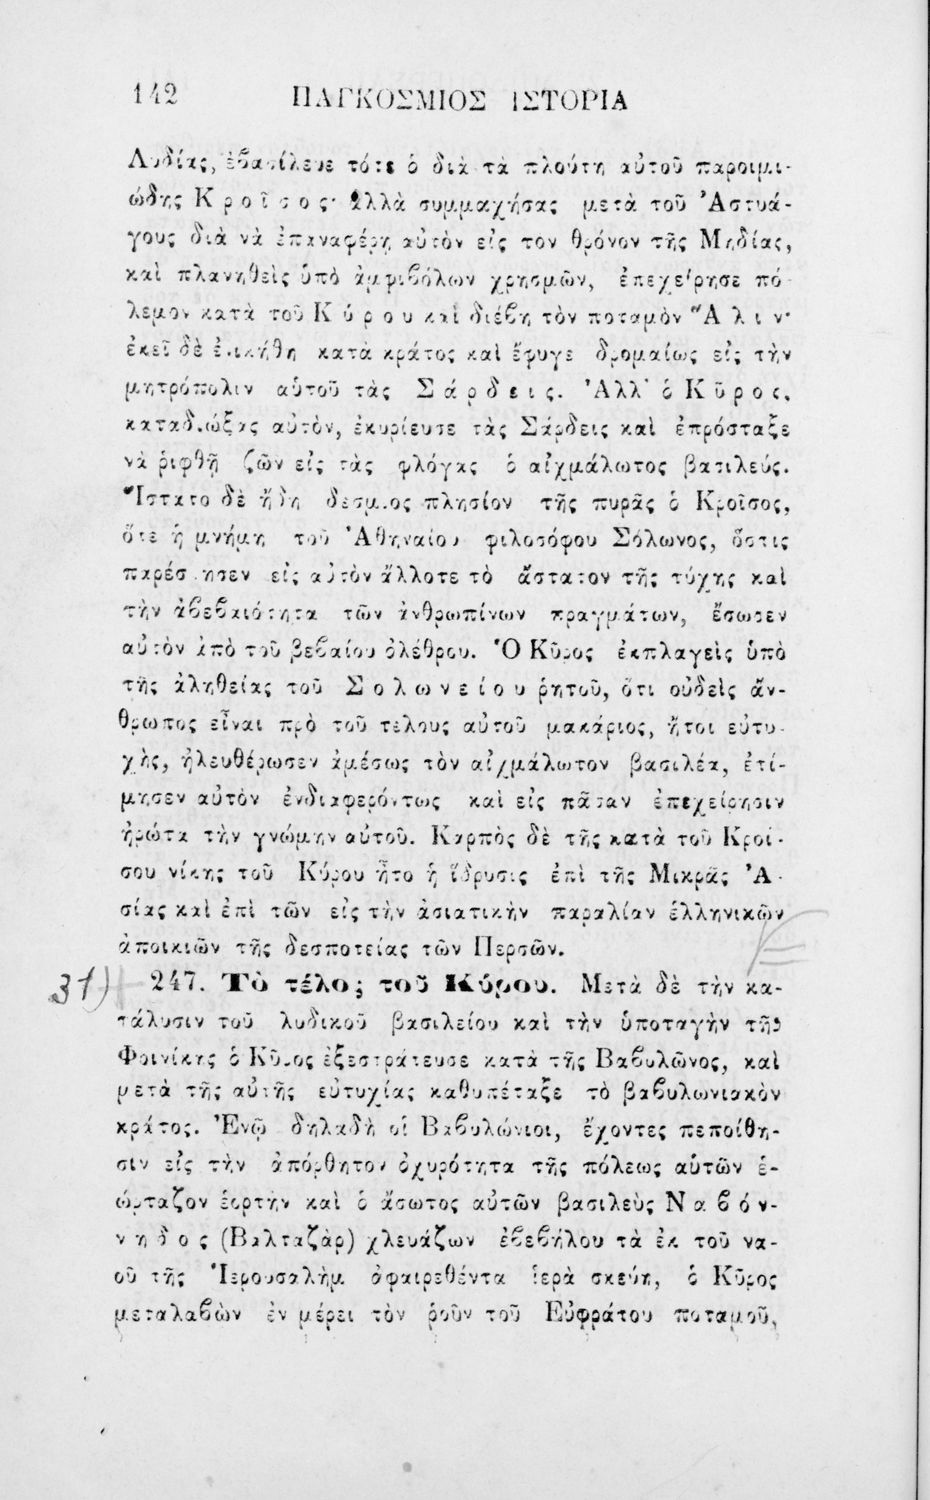 142 ΠΑΓΚΟΣΜΙΟΣ ΙΣΤΟΡΙΑ
Λυδίας, ἐβασίλευε τότε ὁ διὰ τὰ πλούτη αὐτοῦ παροιμι-
ώδης Κροῖσος· ἀλλὰ συμμαχήσας μετὰ τοῦ Ἀστυά-
γους διὰ νὰ ἐπαναφέρῃ αὐτὸν εἰς τον θρόνον τῆς Μηδίας,
καὶ πλανηθεὶς ὑπὸ ἀμφιβόλων χρησμῶν, ἐπεχείρησε πό-
λεμον κατὰ τοῦ Κύρου καὶ διέβη τὸν ποταμὸν Ἅλιν·
ἐκεῖ δὲ ἐνικήθη κατὰ κράτος καὶ ἔφυγε δρομαίως εἰς τὴν
μητρόπολιν αὑτοῦ τὰς Σάρδεις. Ἀλλ' ὁ Κῦρος,
καταδιώξας αὐτὸν, ἐκυρίευσε τὰς Σάρδεις καὶ ἐπρόσταξε
νὰ ῥιφθῇ ζῶν εἰς τὰς φλόγας ὁ αἰχμάλωτος βασιλεύς.
Ἵστατο δὲ ἤδη δεσμιος πλησίον τῆς πυρᾶς ὁ Κροῖσος,
ὅτε ἡ μνήμη τοῦ Ἀθηναίου φιλοσόφου Σόλωνος, ὅστις
παρέστησεν εἰς αὐτὸν ἄλλοτε τὸ ἄστατον τῆς τύχης καὶ
τὴν ἀβεβαιότητα τῶν ἀνθρωπίνων πραγμάτων, ἔσωσεν
αὐτὸν ἀπὸ τοῦ βεβαίου ὀλέθρου. Ὁ Κῦρος ἐκπλαγεὶς ὑπὸ
τῆς ἀληθείας τοῦ Σολωνείου ῥητοῦ, ὅτι οὐδεὶς ἄν-
θρωπος εἶναι πρὸ τοῦ τελους αὐτοῦ μακάριος, ἤτοι εὐτυ-
χὴς, ἠλευθέρωσεν ἀμέσως τὸν αἰχμάλωτον βασιλέα, ἐτί-
μησεν αὐτὸν ἐνδιαφερόντως καὶ εἰς πᾶσαν ἐπεχείρησιν
ἠρώτα τὴν γνώμην αὐτοῦ. Καρπὸς δὲ τῆς κατὰ τοῦ Κροί-
σου νίκης τοῦ Κύρου ἦτο ἡ ἵδρυσις ἐπὶ τῆς Μικρᾶς Ἀ-
σίας καὶ ἐπὶ τῶν εἰς τὴν ἀσιατικὴν παραλίαν ἑλληνικῶν
ἀποικιῶν τῆς δεσποτείας τῶν Περσῶν.
31) 247. Τὸ τέλος τοῦ Κύρου. Μετὰ δὲ τὴν κα-
τάλυσιν τοῦ λυδικοῦ βασιλείου καὶ τὴν ὑποταγὴν τῆς
Φοινίκης ὁ Κῦρος ἐξεστράτευσε κατὰ τῆς Βαβυλῶνος, καὶ
μετὰ τῆς αὐτῆς εὐτυχίας καθυπέταξε τὸ βαβυλωνιακὸν
κράτος. Ἐνῷ δηλαδὴ οἱ Βαβυλώνιοι, ἔχοντες πεποίθη-
σιν εἰς τὴν ἀπόρθητον ὀχυρότητα τῆς πόλεως αὑτῶν ἑ-
ώρταζον ἑορτὴν καὶ ὁ ἄσωτος αὐτῶν βασιλεὺς Ναβόν-
νηδος (Βαλταζὰρ) χλευάζων ἐβεβήλου τὰ ἐκ τοῦ να-
οῦ τῆς Ἱερουσαλὴμ ἀφαιρεθέντα ἱερὰ σκεύη, ὁ Κῦρος
μεταλαβὼν ἐν μέρει τὸν ῥοῦν τοῦ Εὐφράτου ποταμοῦ,